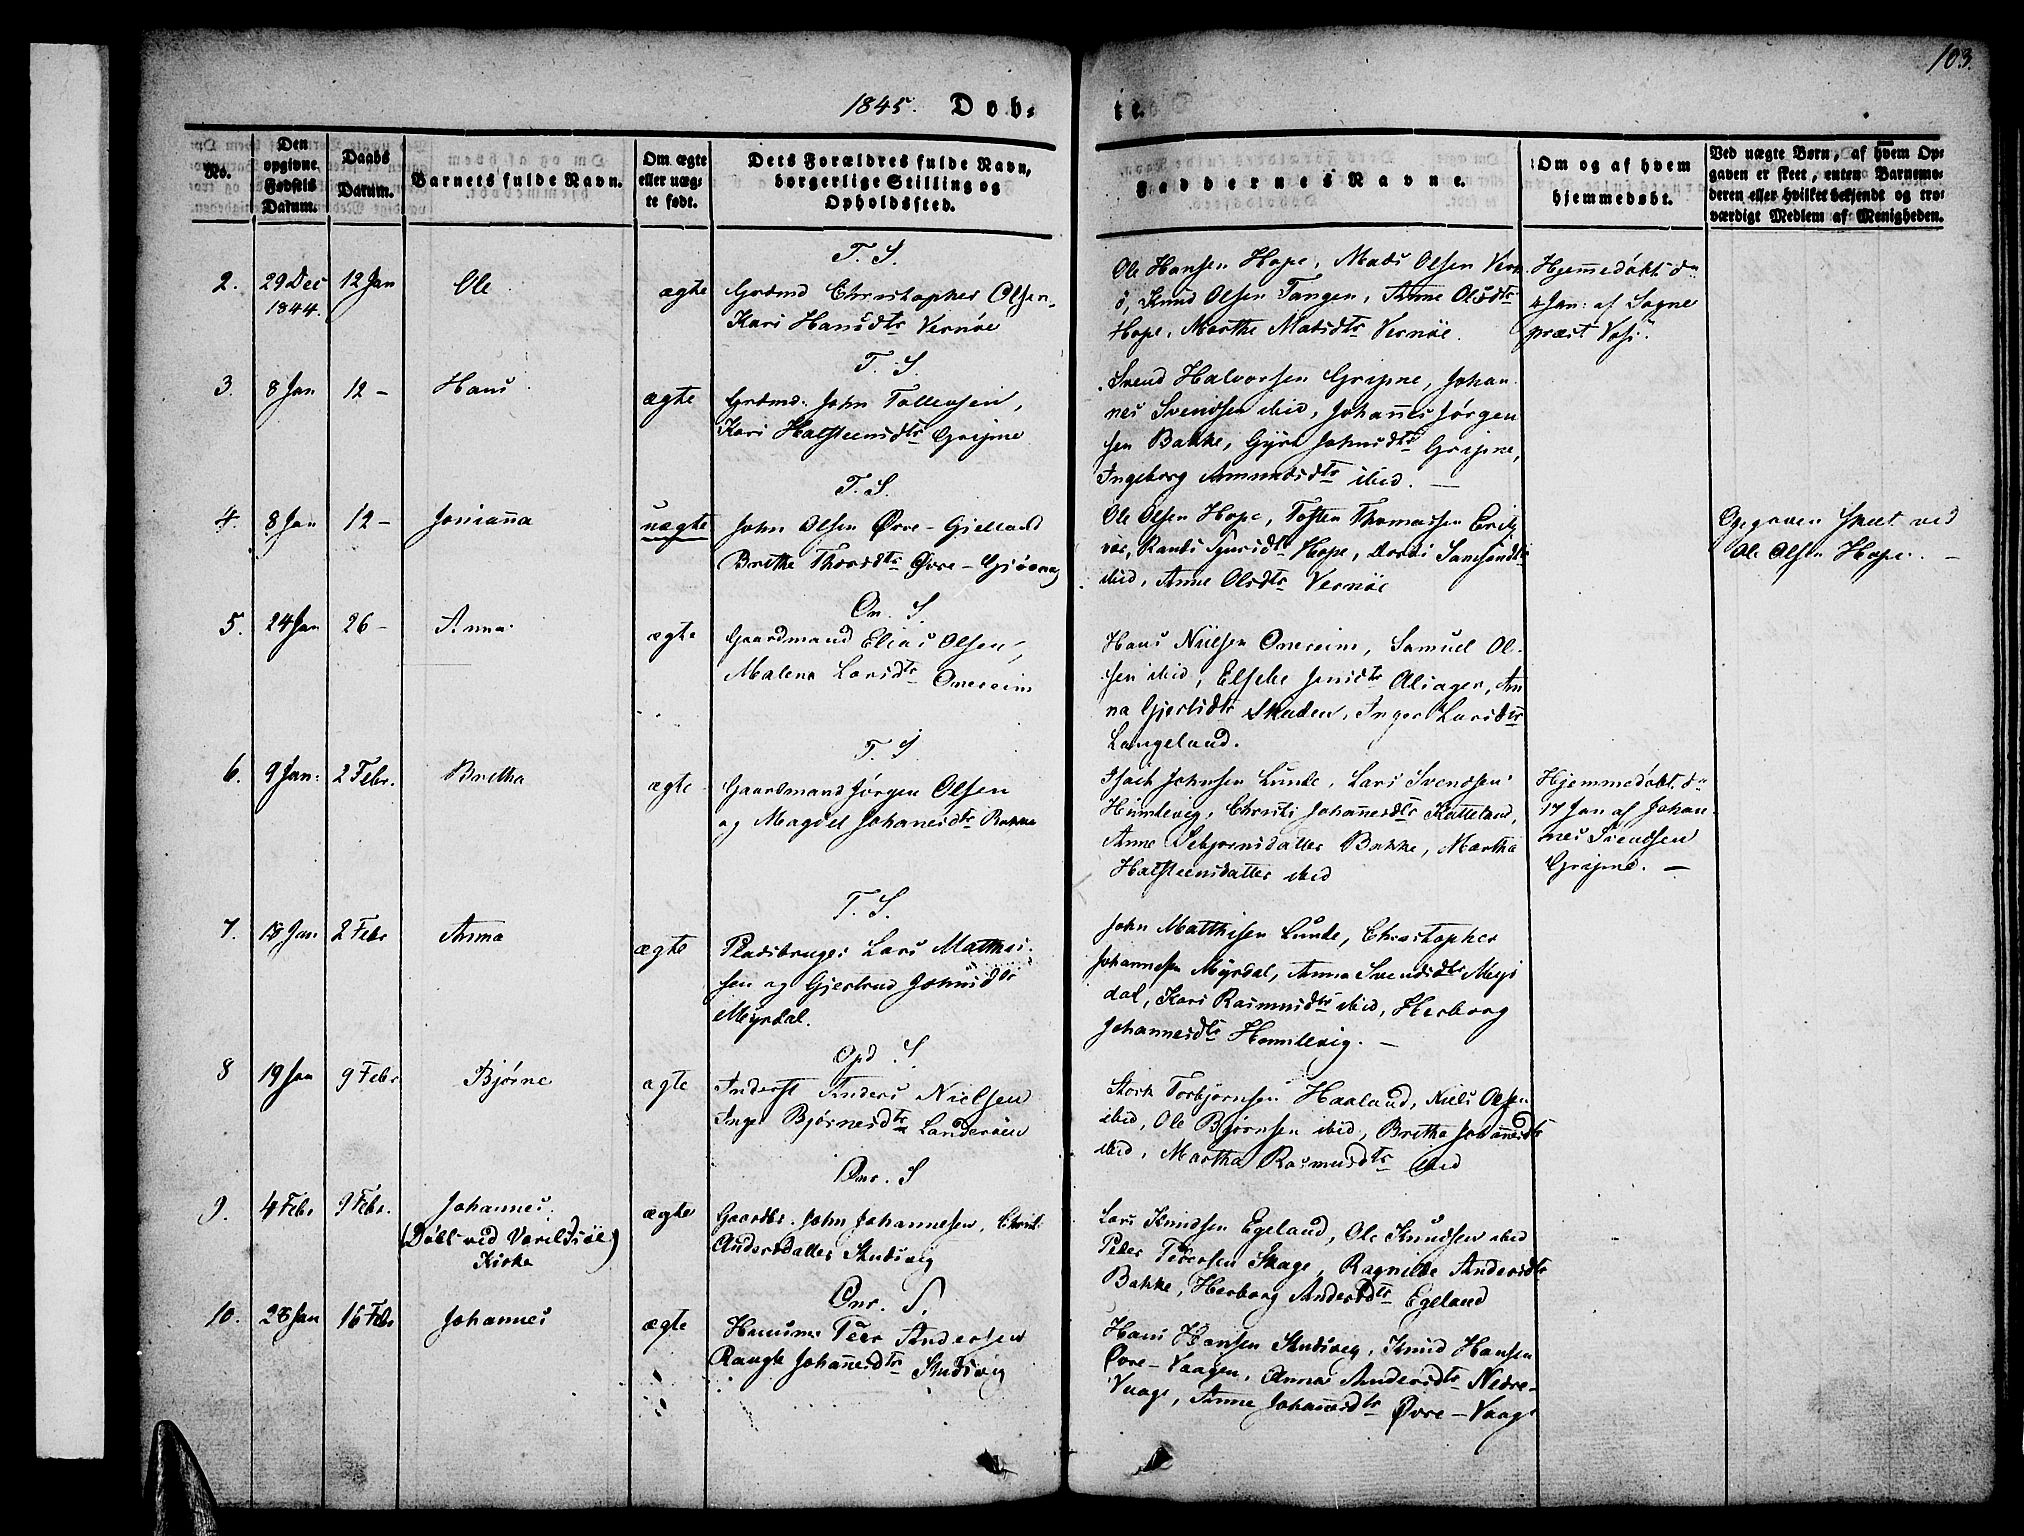 103.
1845. Døb-
te.
No.
Den opgivne Fødsels Datum.
Daabs Datum.
Barnets fulde Navn.
Om ægte eller uægte født.
Dets Forældres fulde Navn, borgerlige Stilling og Opholdssted.
Faddernes Navne.
Om og af hvem hjemmedøbt.
Ved uægte Børn, af hvem Opgaven er skeet, enten Barnemoderen eller hvilket bekjendt og troværdigt Medlem af Menigheden.
T. S.
2. 29 Dec 1844. 12 Jan Ole ægte
Grdmd Christopher Olsen,
Kari Hansdtr Vernøe
Ole Hansen Hope, Mads Olsen Vern
ö, Knud Olsen Tangen, Anne Olsdtr
Hope, Marthe Madsdtr Vernöe.
Hjemmedøbt d
4 Jan: af Sogne
præst Voss.
T. S.
3. 8 Jan 12 - Hans ægte
Grdmd: John Tollevsen,
Kari Halsteensdtr Gripne
Svend Halvorsen Gripne, Johan
nes Svendsen ibid, Johannes Jørgen
sen Bakke, Gyri Johnsdtr Gripne,
Ingeborg Amundsdtr ibid. -
T. S.
4. 8 Jan 12 - Johanna uægte
John Olsen Øvre-Gjelland
Brithe Thorsdtr Øvre-
Ole Olsen Hope, Tosten Thomassen
Randi Hope, Samsondtr
ibid, Anne Olsdtr Vernöe
Opgaven skeet ved
Ole Olsen Hope. -
On. S.
5. 24 Jan 26 - Anna ægte
Gaardmand Elias Olsen,
Malena Larsdtr Onereim
Hans Nielsen Onereim, Samuel Ol-
sen ibid, Elsebe Jensdtr Alsager, An
na Gjertsdtr Skaden, Inger Larsdtr
Langeland.
T. S
6. 9 Jan: 2 Febr. Britha ægte
Gaardmand Jørgen Olsen
og Magdel Johanesdtr Bakke
Isach Johnsen Lunde, Lars Svendsen
Humlevig, Christi Johannesdtr Katteland,
Anne Sebjørnsdatter Bakke, Martha
Halsteensdatter ibid
Hjemmedøbt d
17 Jan af Johan
nes Svendsen
Gripne. -
T. S.
7. 18 Jan 2 Febr Anna ægte
Pladsbruger Lars Matthi-
sen og Gjertrud Johnsdtr
Myrdal.
John Matthisen Lunde, Christopher
Johannesen Myrdal, Anna Svendsdtr Myr
dal, Kari Rasmusdtr ibid, Herborg
Johannesdtr Humlevig. -
Opd S.
8 19 Jan 9 Febr Bjørne ægte
Inderst Anders Nielsen
Inger Bjørnesdtr Landeröen
Stork Torbjørnsen Haaland, Niels Olsen
ibid, Ole Bjørnsen ibid, Britha Johannesdtr
ibid, Martha Rasmusdtr ibid
Onr. S
9. 4 Febr 9 Febr. Johannes. ægte
(Døbt ved Varildsöe)
Kirke
Gaardbr. John Johannesen, Christi
Andersdatter Skudsvig
Lars Knudsen Egeland, Ole Knudsen ibid
Peder Pedersen Skage, Ragnilde Andersdtr
Bakke, Herborg Andersdtr Egeland
Onr. S.
10. 28 Jan 16 Febr Johannes ægte
Huusm: Peer Andersen
Rangle Johannesdtr Skudsvig
Hans Hansen Skudsvig, Knud Hansen
Øvre-Vaagen, Anna Andersdtr Nedre-
Vaage, Anne Johannesdtr Øvre-Vaage